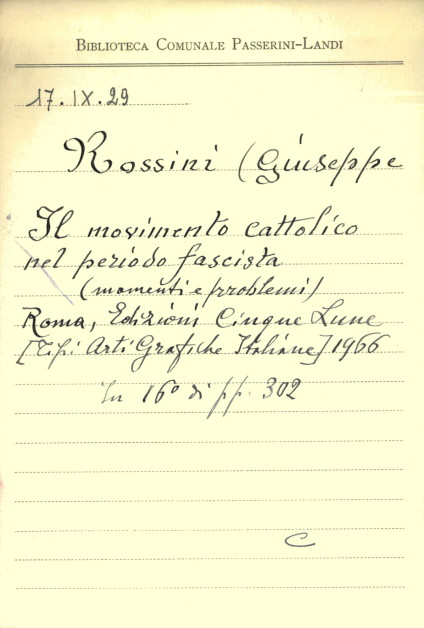 BIBLIOTECA COMUNALE PASSERINI-LANDI
17.IX.29
Rossini (Giuseppe
Il movimento cattolico
nel periodo fascista
(momenti e problemi)
Roma, Edizioni Cinque Lune
[Tipi Arti Grafiche Italiane] 1966
In 16º di pp. 302
C